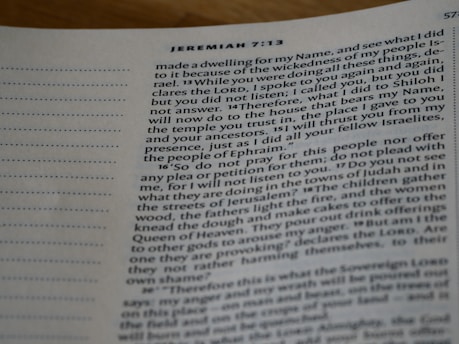 JEREMIAH 7:13
57
made a dwelling for my Name, and see what I did
to it because of the wickedness of my people Is-
rael. 13 While you were doing all these things, de-
clares the LORD, I spoke to you again and again,
but you did not listen; I called you, but you did
not answer. 14 Therefore, what I did to Shiloh I
will now do to the house that bears my Name,
the temple you trust in, the place I gave to you
and your ancestors. 15 I will thrust you from my
presence, just as I did all your fellow Israelites,
the people of Ephraim."
16 "So do not pray for this people nor offer
any plea or petition for them; do not plead with
me, for I will not listen to you. 17 Do you not see
what they are doing in the towns of Judah and in
the streets of Jerusalem? 18 The children gather
wood, the fathers light the fire, and the women
knead the dough and make cakes to offer to the
Queen of Heaven. They pour out drink offerings
to other gods to arouse my anger. 19 But am I the
one they are provoking? declares the LORD. Are
they not rather harming themselves, to their
own shame?
20 " 'Therefore this is what the Sovereign LORD
says: my anger and my wrath will be poured out
on this place — on man and beast, on the trees of
the field and on the crops of your land — and it
will burn and not be quenched.
is what the LORD Almighty, the God